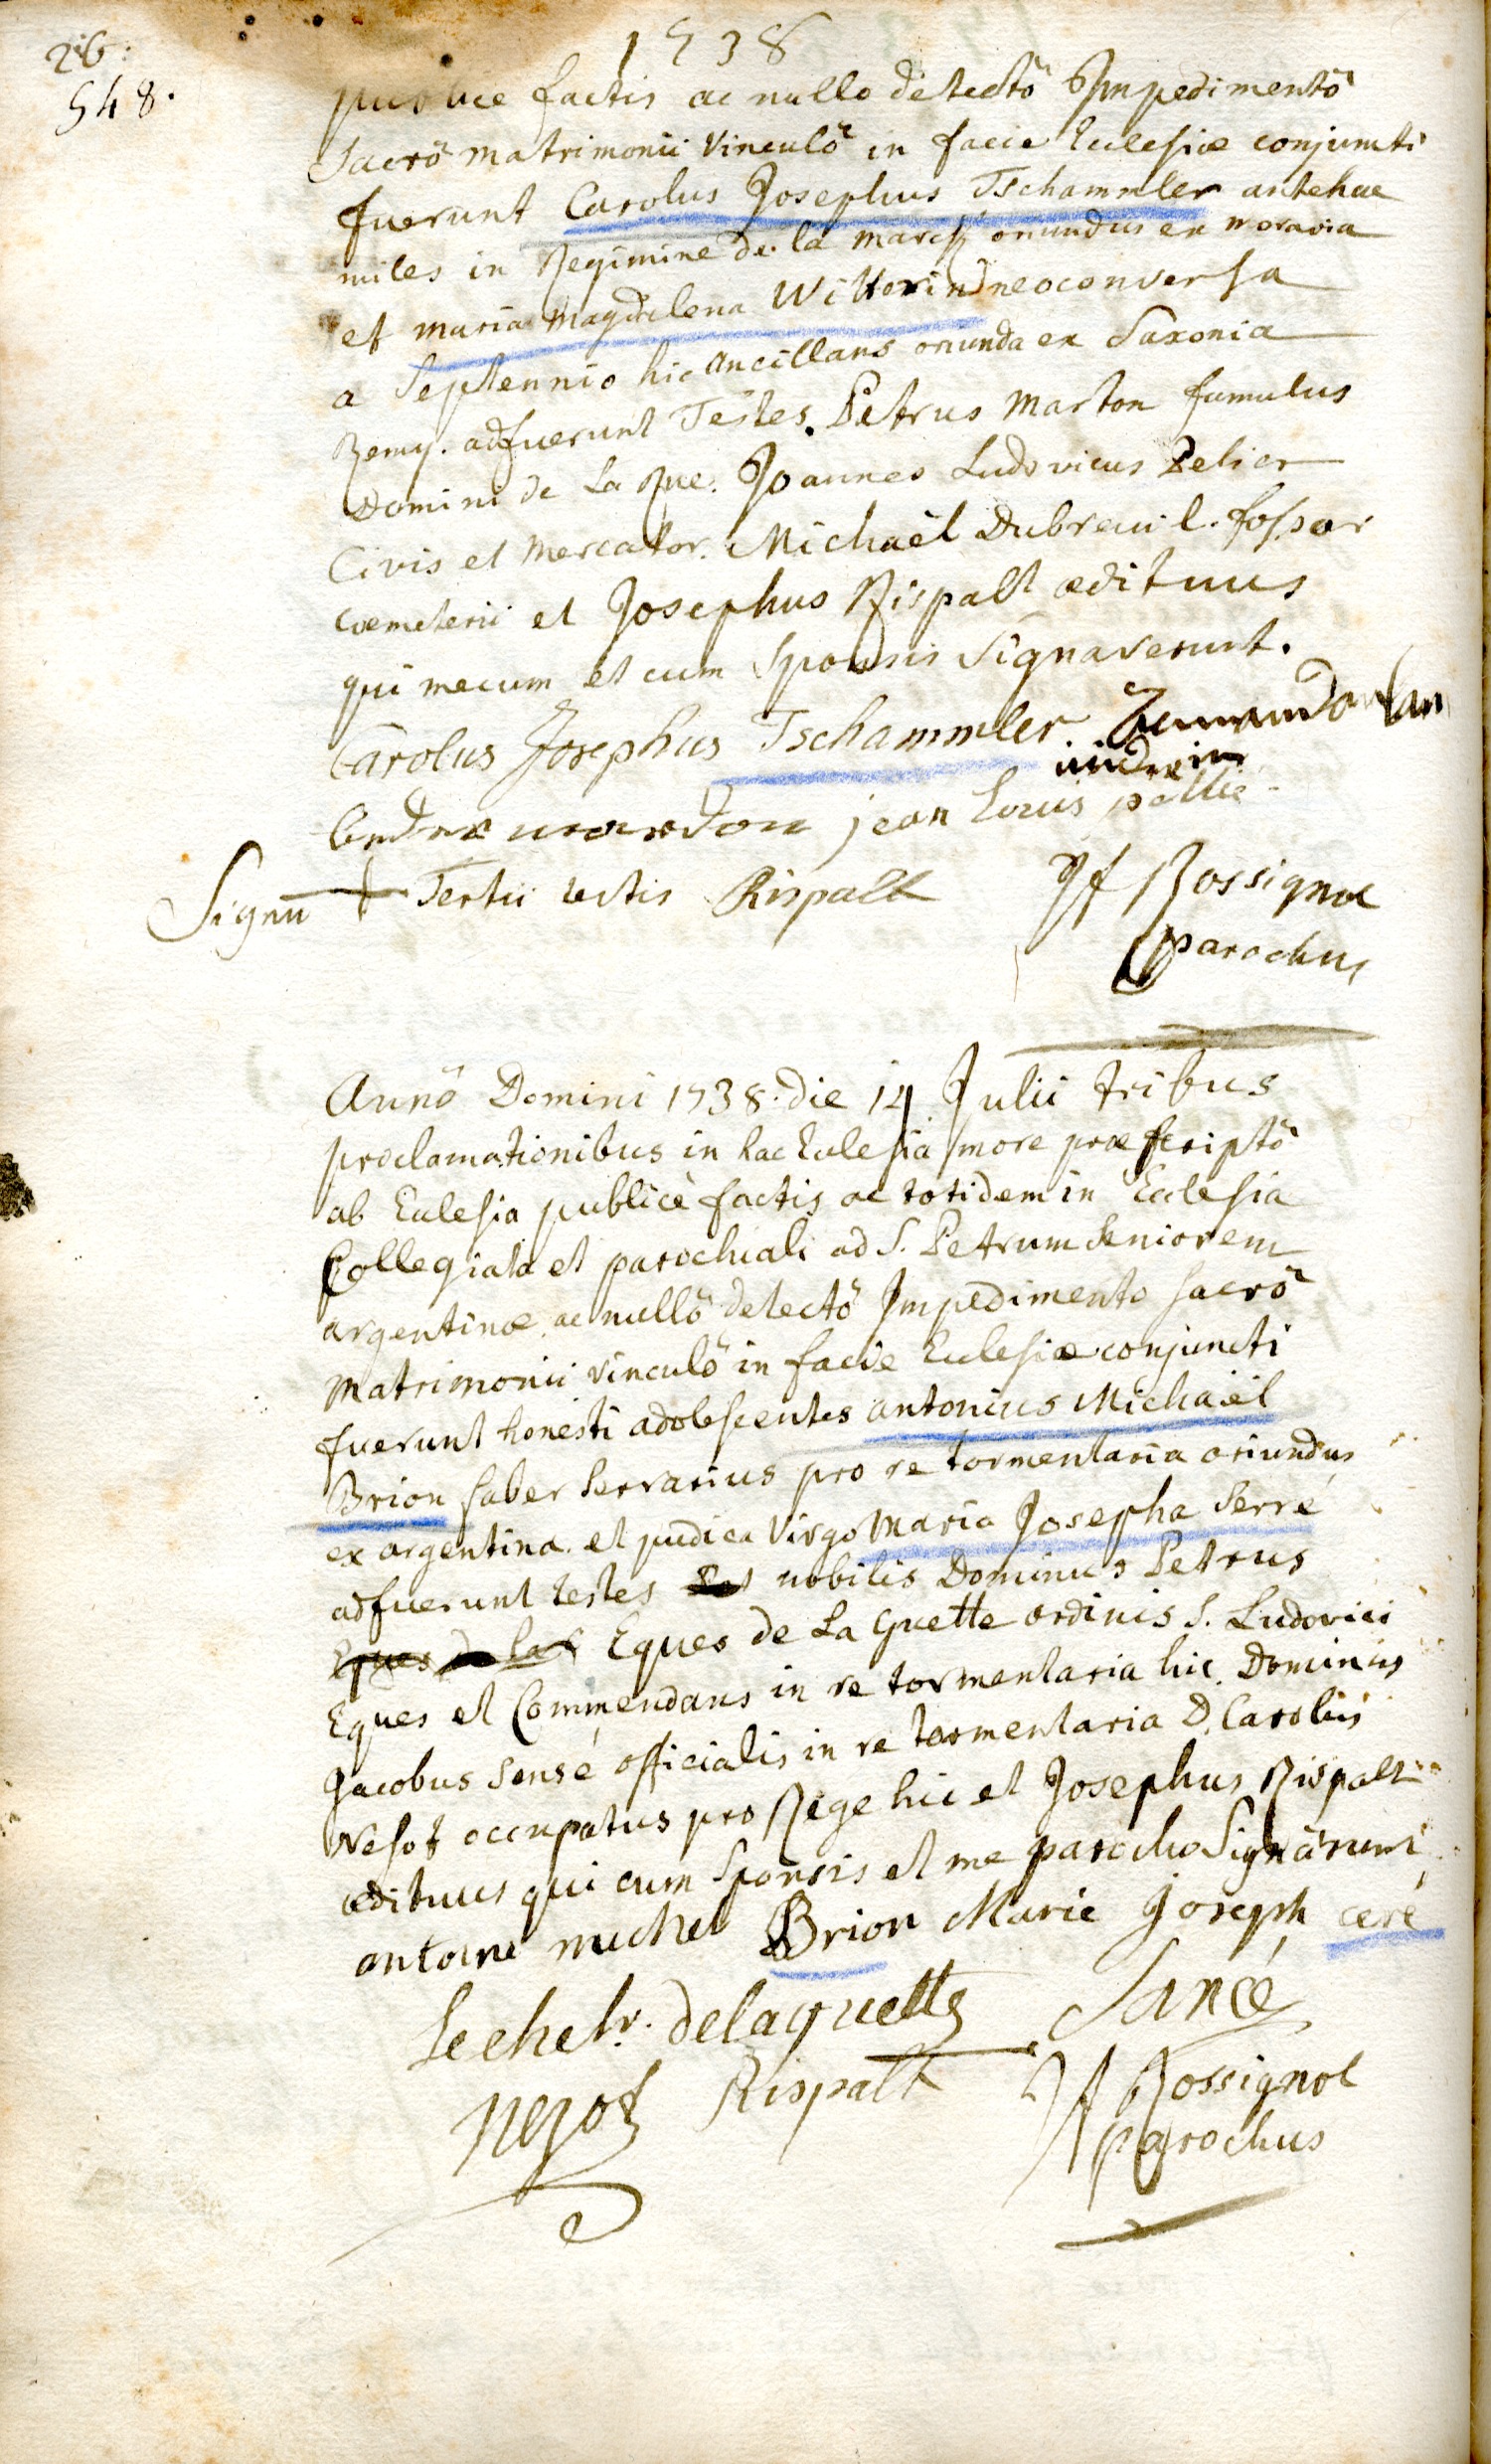 1738
216:
548.
publice factis ac nullo detectô Impedimentô
Sacrô matrimonii Vinculô in facie Ecclesiæ conjuncti
fuerunt Carolus Josephus Tschammler antehac
miles in Regimine de la march oriundus ex moravia
et maria magdalena Witterin neoconversa
a Septennio hic ancillans oriunda ex Saxonia
Remy. adfuerunt Testes. Petrus Marton famulus
Domini de La Rue. Joannes Ludovicus Pelier
Civis et Mercator. Michaël Dubreuil. fossor
coemeterii et Josephus Rispalt ædituus
qui mecum et cum Sponsis Signaverunt.
Carolus Josephus Tschammler
jean Louis pellie
Signū + Tertii testis Rispalt Jf Rossignol
parochus
Annô Domini 1738. die 14 Julii tribus
proclamationibus in hac Eclesia more præscriptô
ab Eclesia publicè factis ac totidem in Eclesia
Collegiata et parochiali ad S. Petrum Seniorem
argentinæ ac nullô detectô Impedimento sacrô
Matrimonii vinculô in facie Ecclesiæ conjuncti
fuerunt honesti adolescentes antonius Michaël
Brion faber serrarius pro re tormentaria oriundus
ex argentina. et pudica Virgo Maria Josepha Serré
adfuerunt testes nobilis Dominus Petrus
Eques de la Eques de La Guette ordinis S. Ludovici
Eques et Commendans in re tormentaria hic. Dominus
Jacobus Sensé officialis in re tormentaria D. Carolus
Nesot occupatus pro Rege hic et Josephus Rispalt
ædituus qui cum Sponsis et me parocho Signârunt
antoine michel Brion Marie Joseph ceré
Le chelr. delaguette Sancé
nezot Rispalt Jf Rossignol
parochus